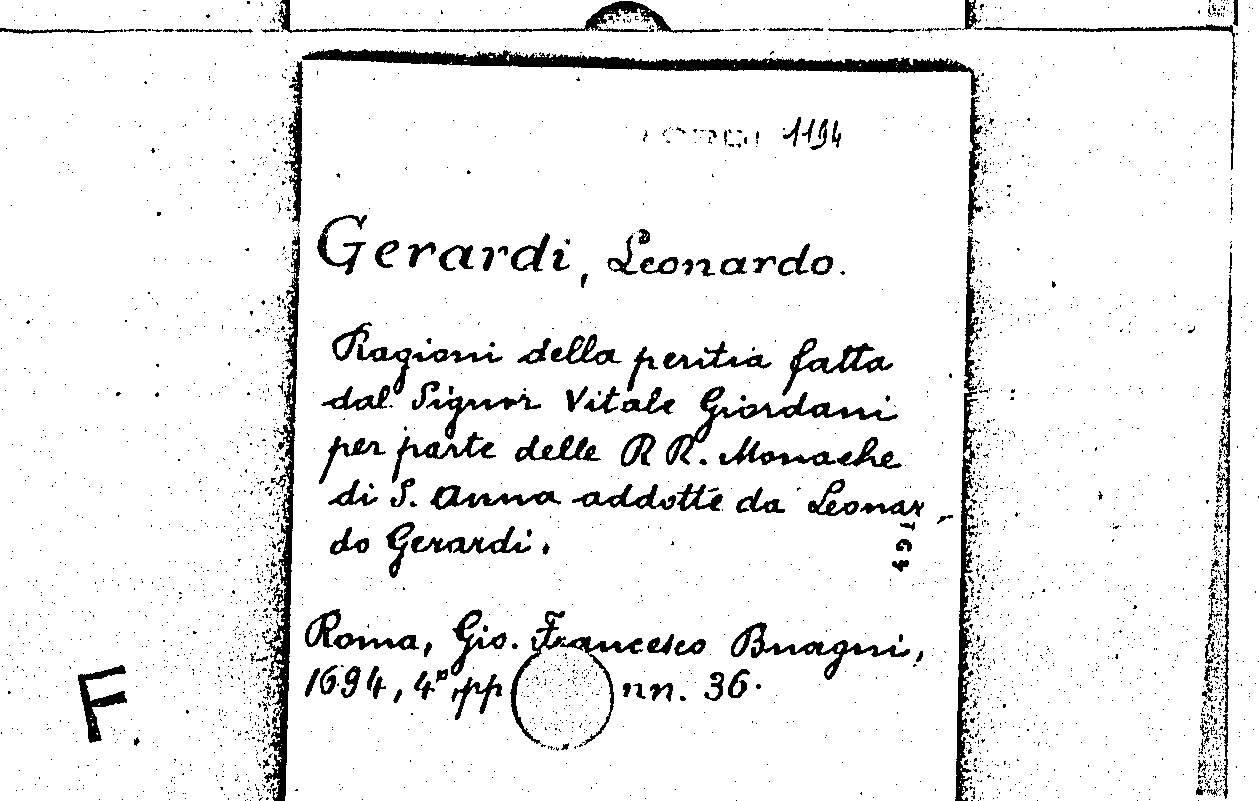 1194
Gerardi, Leonardo.
Ragioni della peritia fatta
dal Signor Vitale Giordani
per parte delle RR. Monache
di S. Anna addotte da Leonar-
do Gerardi.
Roma, Gio. Francesco Buagni,
1694, 4°, pp nn. 36.
F.